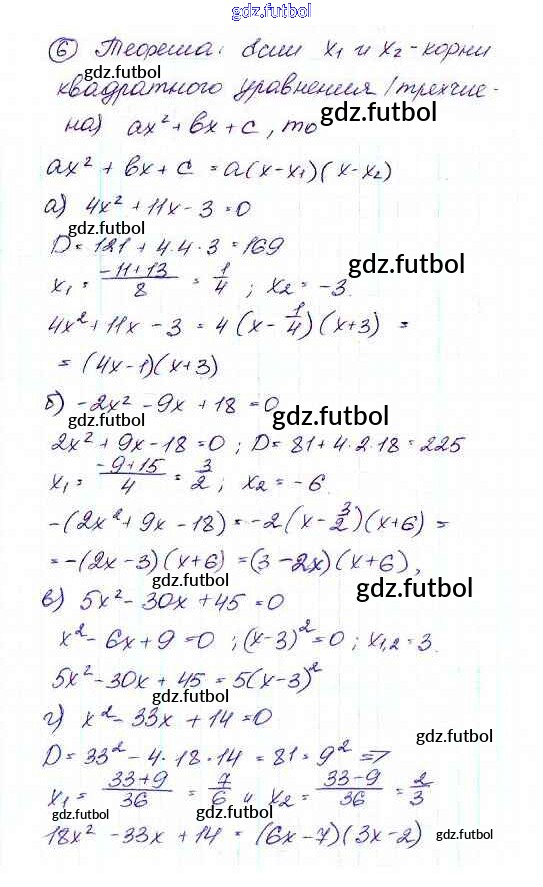 gdz.futbol
⑥ Теорема: Если x₁ и x₂ - корни
gdz.futbol
квадратного уравнения /трехчле-
gdz.futbol
на) ax² + bx + c, то
ax² + bx + c = a(x - x₁)(x - x₂)
а) 4x² + 11x - 3 = 0
D = 121 + 4·4·3 = 169
gdz.futbol
x₁ = (-11+13)/8 = 1/4 ; x₂ = -3.
4x² + 11x - 3 = 4(x - 1/4)(x + 3) =
= (4x - 1)(x + 3)
б) -2x² - 9x + 18 = 0
gdz.futbol
2x² + 9x - 18 = 0 ; D = 81 + 4·2·18 = 225
gdz.futbol
x₁ = (-9+15)/4 = 3/2 ; x₂ = -6.
-(2x² + 9x - 18) = -2(x - 3/2)(x + 6) =
= -(2x - 3)(x + 6) = (3 - 2x)(x + 6),
gdz.futbol
gdz.futbol
в) 5x² - 30x + 45 = 0
x² - 6x + 9 = 0 ; (x - 3)² = 0 ; x₁,₂ = 3.
5x² - 30x + 45 = 5(x - 3)²
gdz.futbol
г) x² - 33x + 14 = 0
gdz.futbol
D = 33² - 4·18·14 = 81 = 9² =>
x₁ = (33+9)/36 = 7/6 и x₂ = (33-9)/36 = 2/3
gdz.futbol
18x² - 33x + 14 = (6x - 7)(3x - 2)
gdz.futbol